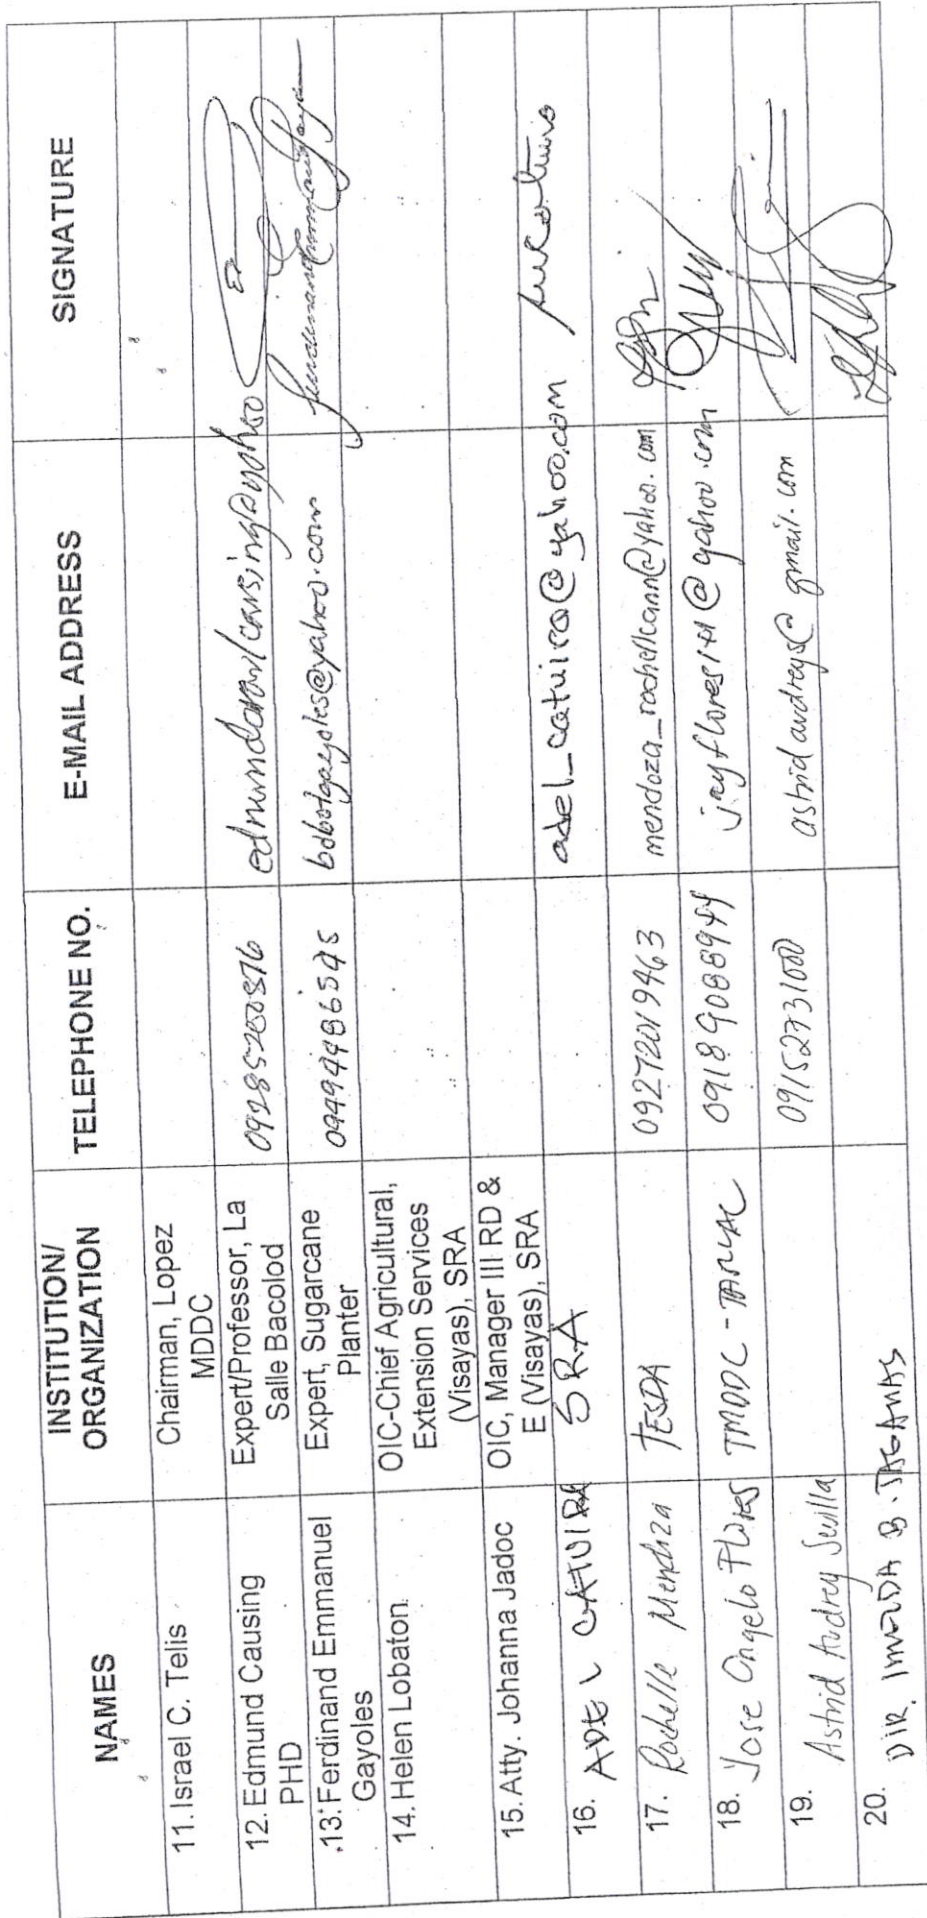 NAMES INSTITUTION/ TELEPHONE NO. E-MAIL ADDRESS SIGNATURE
ORGANIZATION
11. Israel C. Telis Chairman, Lopez
MDDC
12. Edmund Causing Expert/Professor, La 09285280876
PHD Salle Bacolod
13. Ferdinand Emmanuel Expert, Sugarcane 09494486545
Gayoles Planter
14. Helen Lobaton OIC-Chief Agricultural,
Extension Services
(Visayas), SRA
15. Atty. Johanna Jadoc OIC, Manager III RD &
E (Visayas), SRA
16. ADEL CATUIRA SRA adel_catuira@yahoo.com
17. Rochelle Mendoza TESDA 09272019463 mendoza_rochelleann@yahoo.com
18. Jose Angelo Flores TMDDC - TARLAC 09189088944
19. Astrid Audrey Sevilla 09152731000 astridaudreys@gmail.com
20. DIR. IMELDA B. TAGANAS